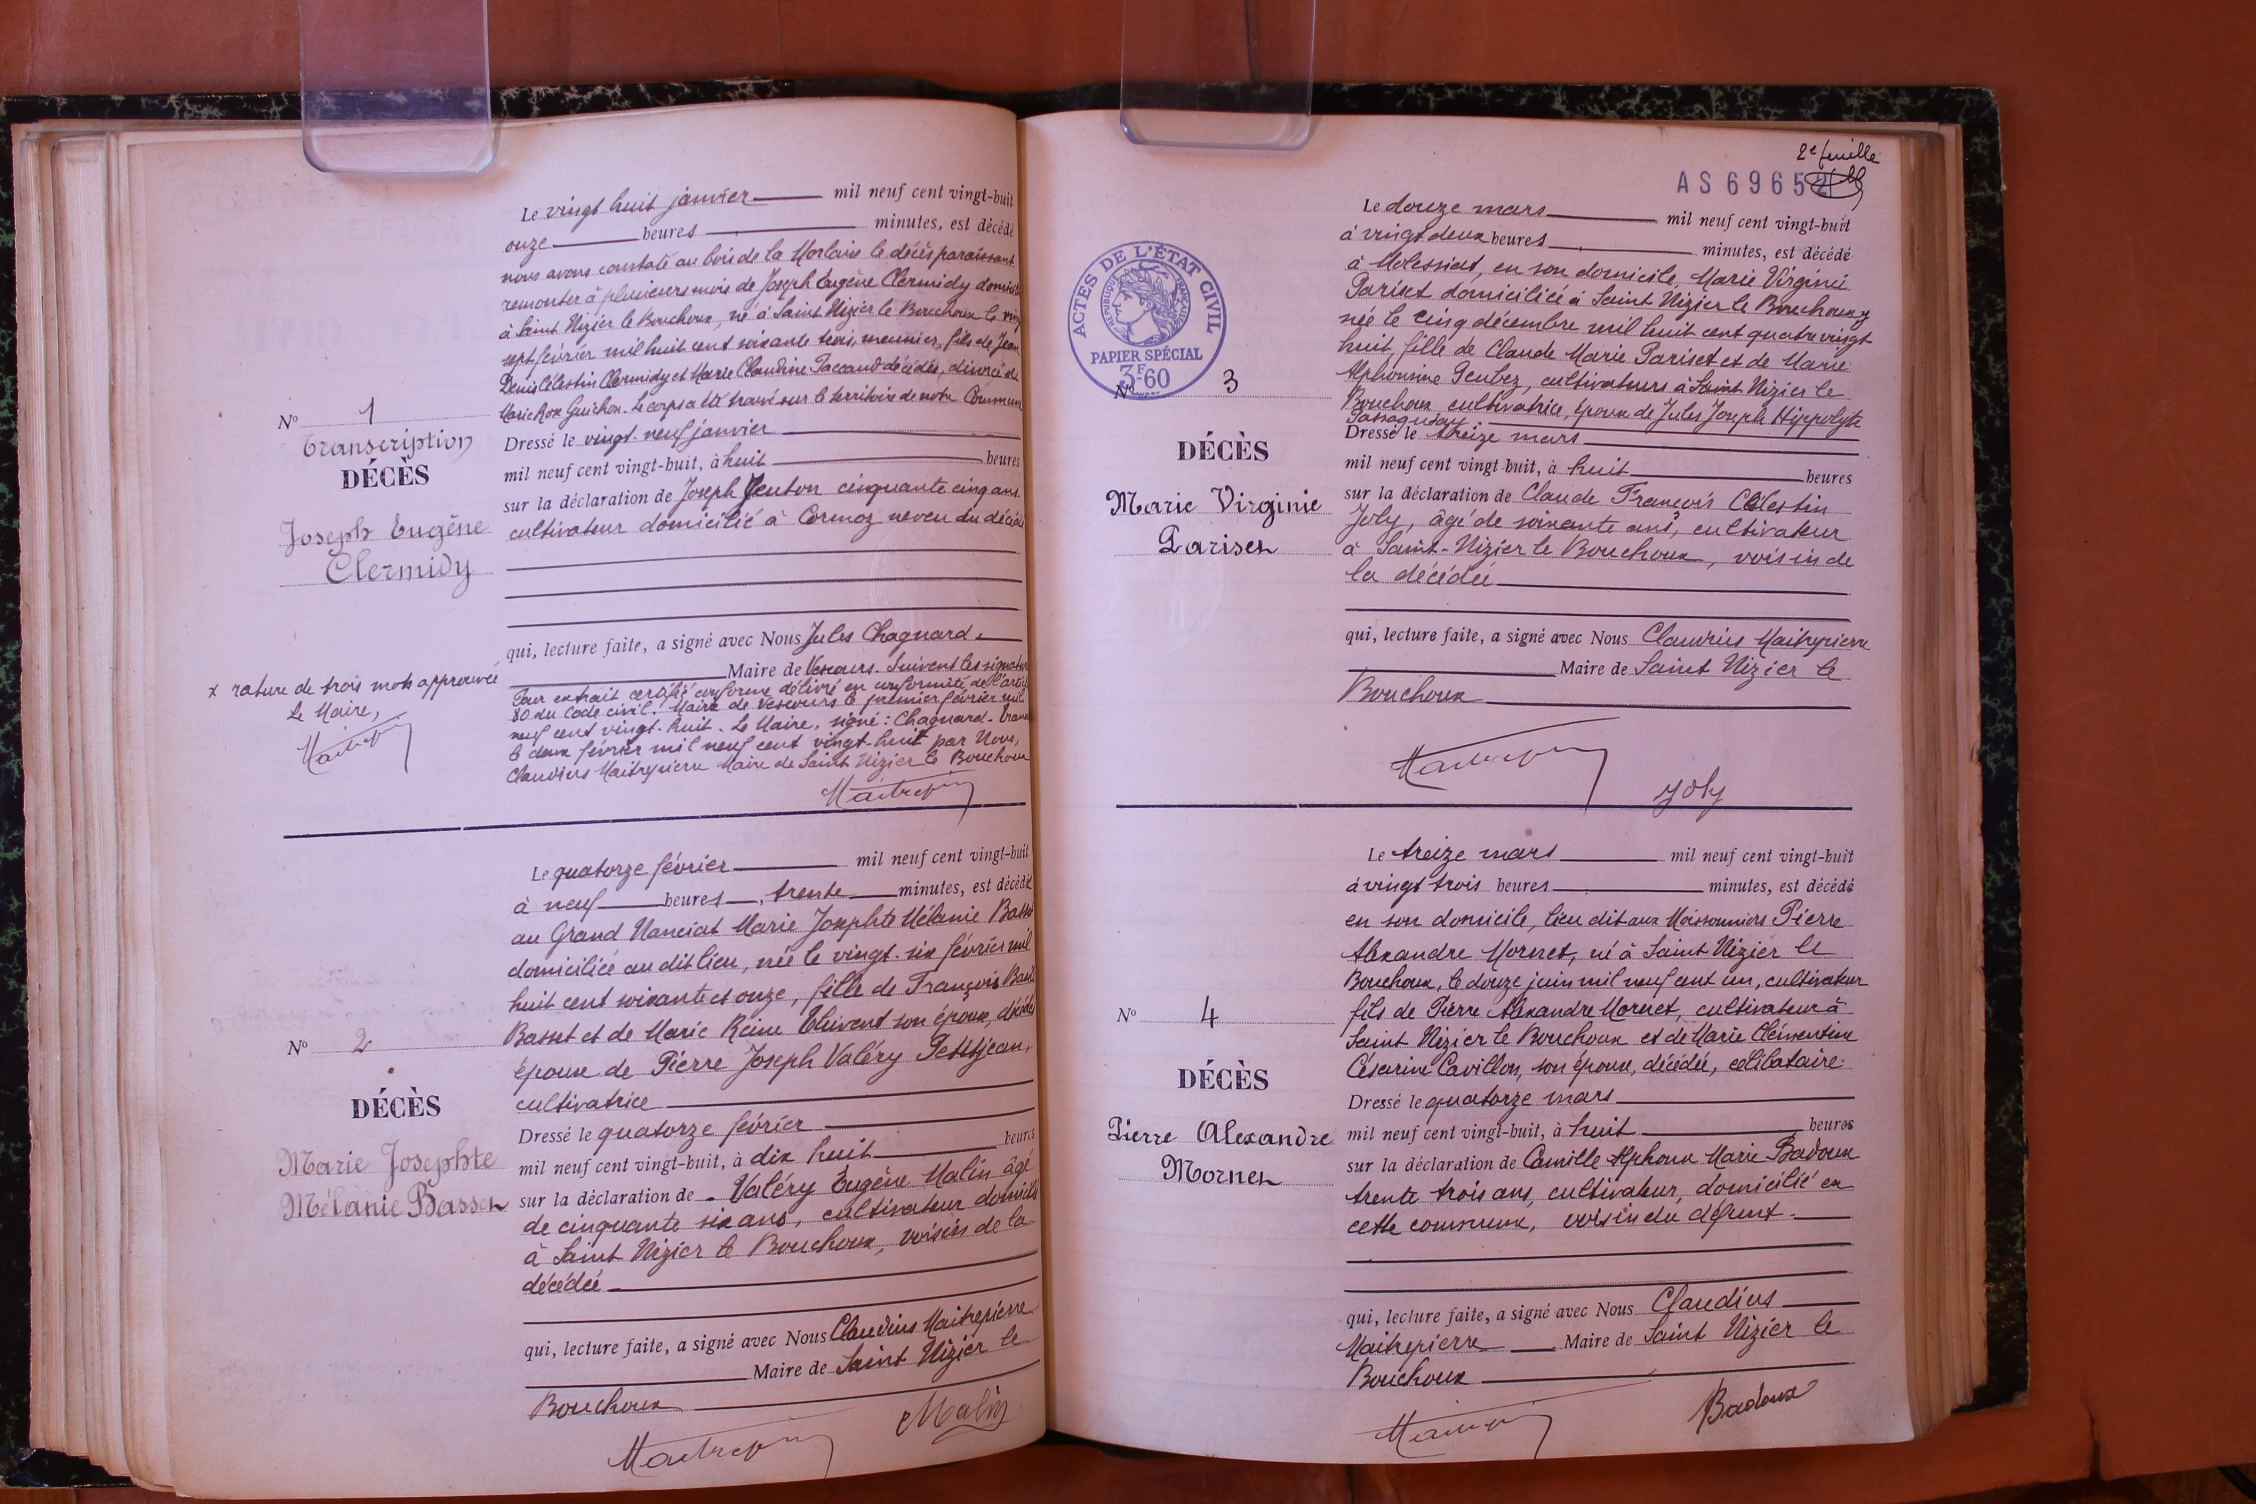 Le vingt huit janvier mil neuf cent vingt-huit
onze heures minutes, est décédé
nous avons constaté au bois de la Morlaise le décès paraissant
remonter à plusieurs mois de Joseph Eugène Clermidy
à Saint Nizier le Bouchoux, né à Saint Nizier le Bouchoux le
sept février mil huit cent soixante trois, meunier, fils de Jean
Denis Célestin Clermidy et Marie Claudine Paccaud décédés, divorcé de
Marie Rose Guichon. Le corps a été trouvé sur le territoire de notre Commune
Nº 1
Transcription
DÉCÈS
Joseph Eugène
Clermidy
Dressé le vingt-neuf janvier
mil neuf cent vingt-huit, à huit heures
sur la déclaration de Joseph Genton cinquante cinq ans
cultivateur domicilié à Cormoz neveu du décédé
qui, lecture faite, a signé avec Nous Jules Chagnard.
Maire de Vescours. Suivent les
x rature de trois mots approuvée
Le Maire,
Maitrepierre
Pour extrait certifié conforme délivré en conformité de
80 du Code civil. Maire de Vescours le premier février mil
neuf cent vingt-huit. Le Maire, signé: Chagnard.
le deux février mil neuf cent vingt-huit par Nous,
Claudius Maitrepierre Maire de Saint Nizier le Bouchoux
Maitrepierre
Le quatorze février mil neuf cent vingt-huit
à neuf heures, trente minutes, est décédé
au Grand Nanciat Marie Josephte Mélanie Basset
domiciliée au dit lieu, née le vingt-six février mil
huit cent soixante et onze, fille de François
Basset et de Marie Reine Thivent son épouse, décédés
épouse de Pierre Joseph Valéry Petitjean,
cultivatrice
Nº 2
DÉCÈS
Marie Josephte
Mélanie Basset
Dressé le quatorze février
mil neuf cent vingt-huit, à dix huit heures
sur la déclaration de Valéry Eugène Malin âgé
de cinquante six ans, cultivateur domicilié
à Saint Nizier le Bouchoux, voisin de la
décédée
qui, lecture faite, a signé avec Nous Claudius Maitrepierre
Maire de Saint Nizier le
Bouchoux
Maitrepierre Malin
2e feuille
AS 6965
Le douze mars mil neuf cent vingt-huit
à vingt deux heures minutes, est décédé
à Molessiat, en son domicile, Marie Virginie
Pariset domiciliée à Saint Nizier le Bouchoux
née le cinq décembre mil huit cent quatre vingt
huit, fille de Claude Marie Pariset et de Marie
Alphonsine Peubez, cultivateurs à Saint Nizier le
Bouchoux, cultivatrice, épouse de Jules Joseph Hippolyte
Passaquay.
ACTES DE L'ÉTAT CIVIL
RÉPUBLIQUE FRANÇAISE
PAPIER SPÉCIAL
3F60
Nº 3
DÉCÈS
Marie Virginie
Pariset
Dressé le treize mars
mil neuf cent vingt-huit, à huit heures
sur la déclaration de Claude François Célestin
Joly, âgé de soixante ans, cultivateur
à Saint-Nizier le Bouchoux, voisin de
la décédée
qui, lecture faite, a signé avec Nous Claudius Maitrepierre
Maire de Saint Nizier le
Bouchoux
Maitrepierre Joly
Le treize mars mil neuf cent vingt-huit
à vingt trois heures minutes, est décédé
en son domicile, lieu dit aux Moissonniers Pierre
Alexandre Mornet, né à Saint Nizier le
Bouchoux, le douze juin mil neuf cent un, cultivateur
fils de Pierre Alexandre Mornet, cultivateur à
Saint Nizier le Bouchoux et de Marie Clémentine
Césarine Cavillon, son épouse, décédée, célibataire.
Nº 4
DÉCÈS
Pierre Alexandre
Mornet
Dressé le quatorze mars
mil neuf cent vingt-huit, à huit heures
sur la déclaration de Camille Alphonse Marie Badoux
trente trois ans, cultivateur, domicilié en
cette commune, voisin du défunt.
qui, lecture faite, a signé avec Nous Claudius
Maitrepierre Maire de Saint Nizier le
Bouchoux
Maitrepierre Badoux